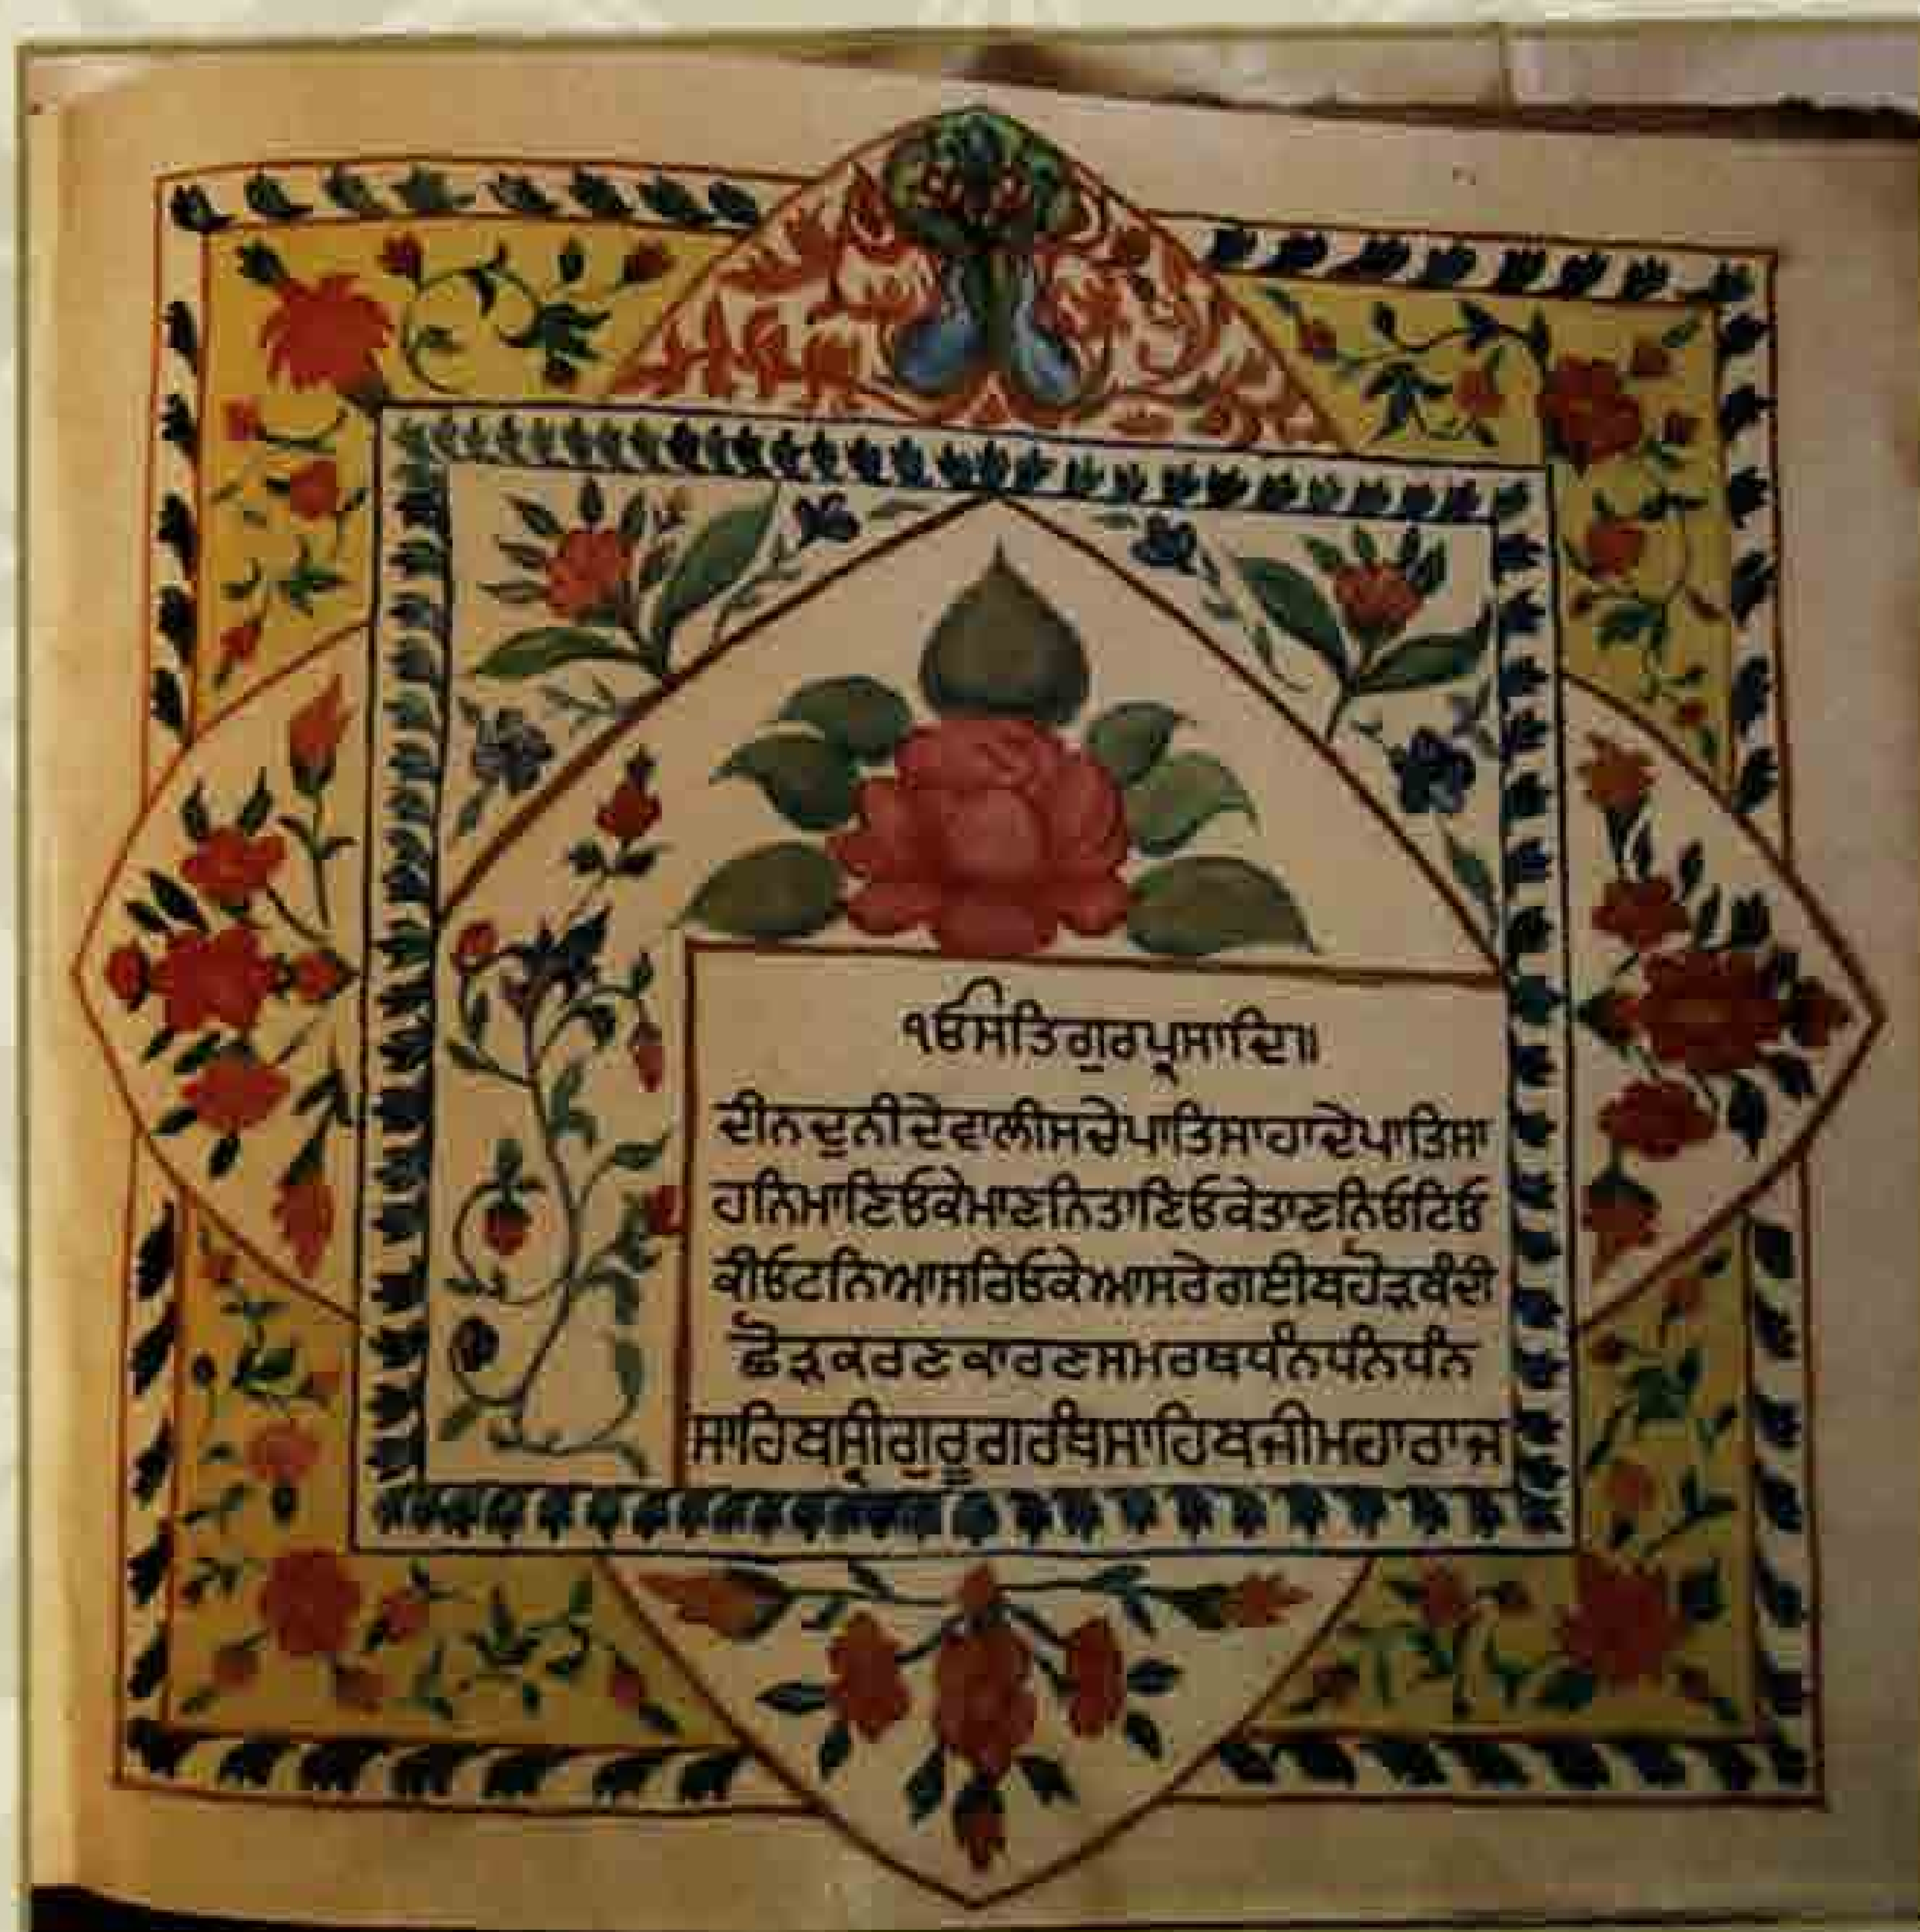 ੴਸਤਿਗੁਰਪ੍ਰਸਾਦਿ॥
ਦੀਨਦੁਨੀਦੇਵਾਲੀਸਚੇਪਾਤਿਸਾਹਾਦੇਪਾਤਿਸਾ
ਹਨਿਮਾਣਿਓਕੇਮਾਣਨਿਤਾਣਿਓਕੇਤਾਣਨਿਓਟਿਓ
ਕੀਓਟਨਿਆਸਰਿਓਕੇਆਸਰੇਗਈਬਹੋੜਬੰਦੀ
ਛੋੜਕਰਣਕਾਰਣਸਮਰਥਧੰਨਧੰਨਿਧੰਨ
ਸਾਹਿਬਸ੍ਰੀਗੁਰੂਗਰੰਥਸਾਹਿਬਜੀਮਹਾਰਾਜ